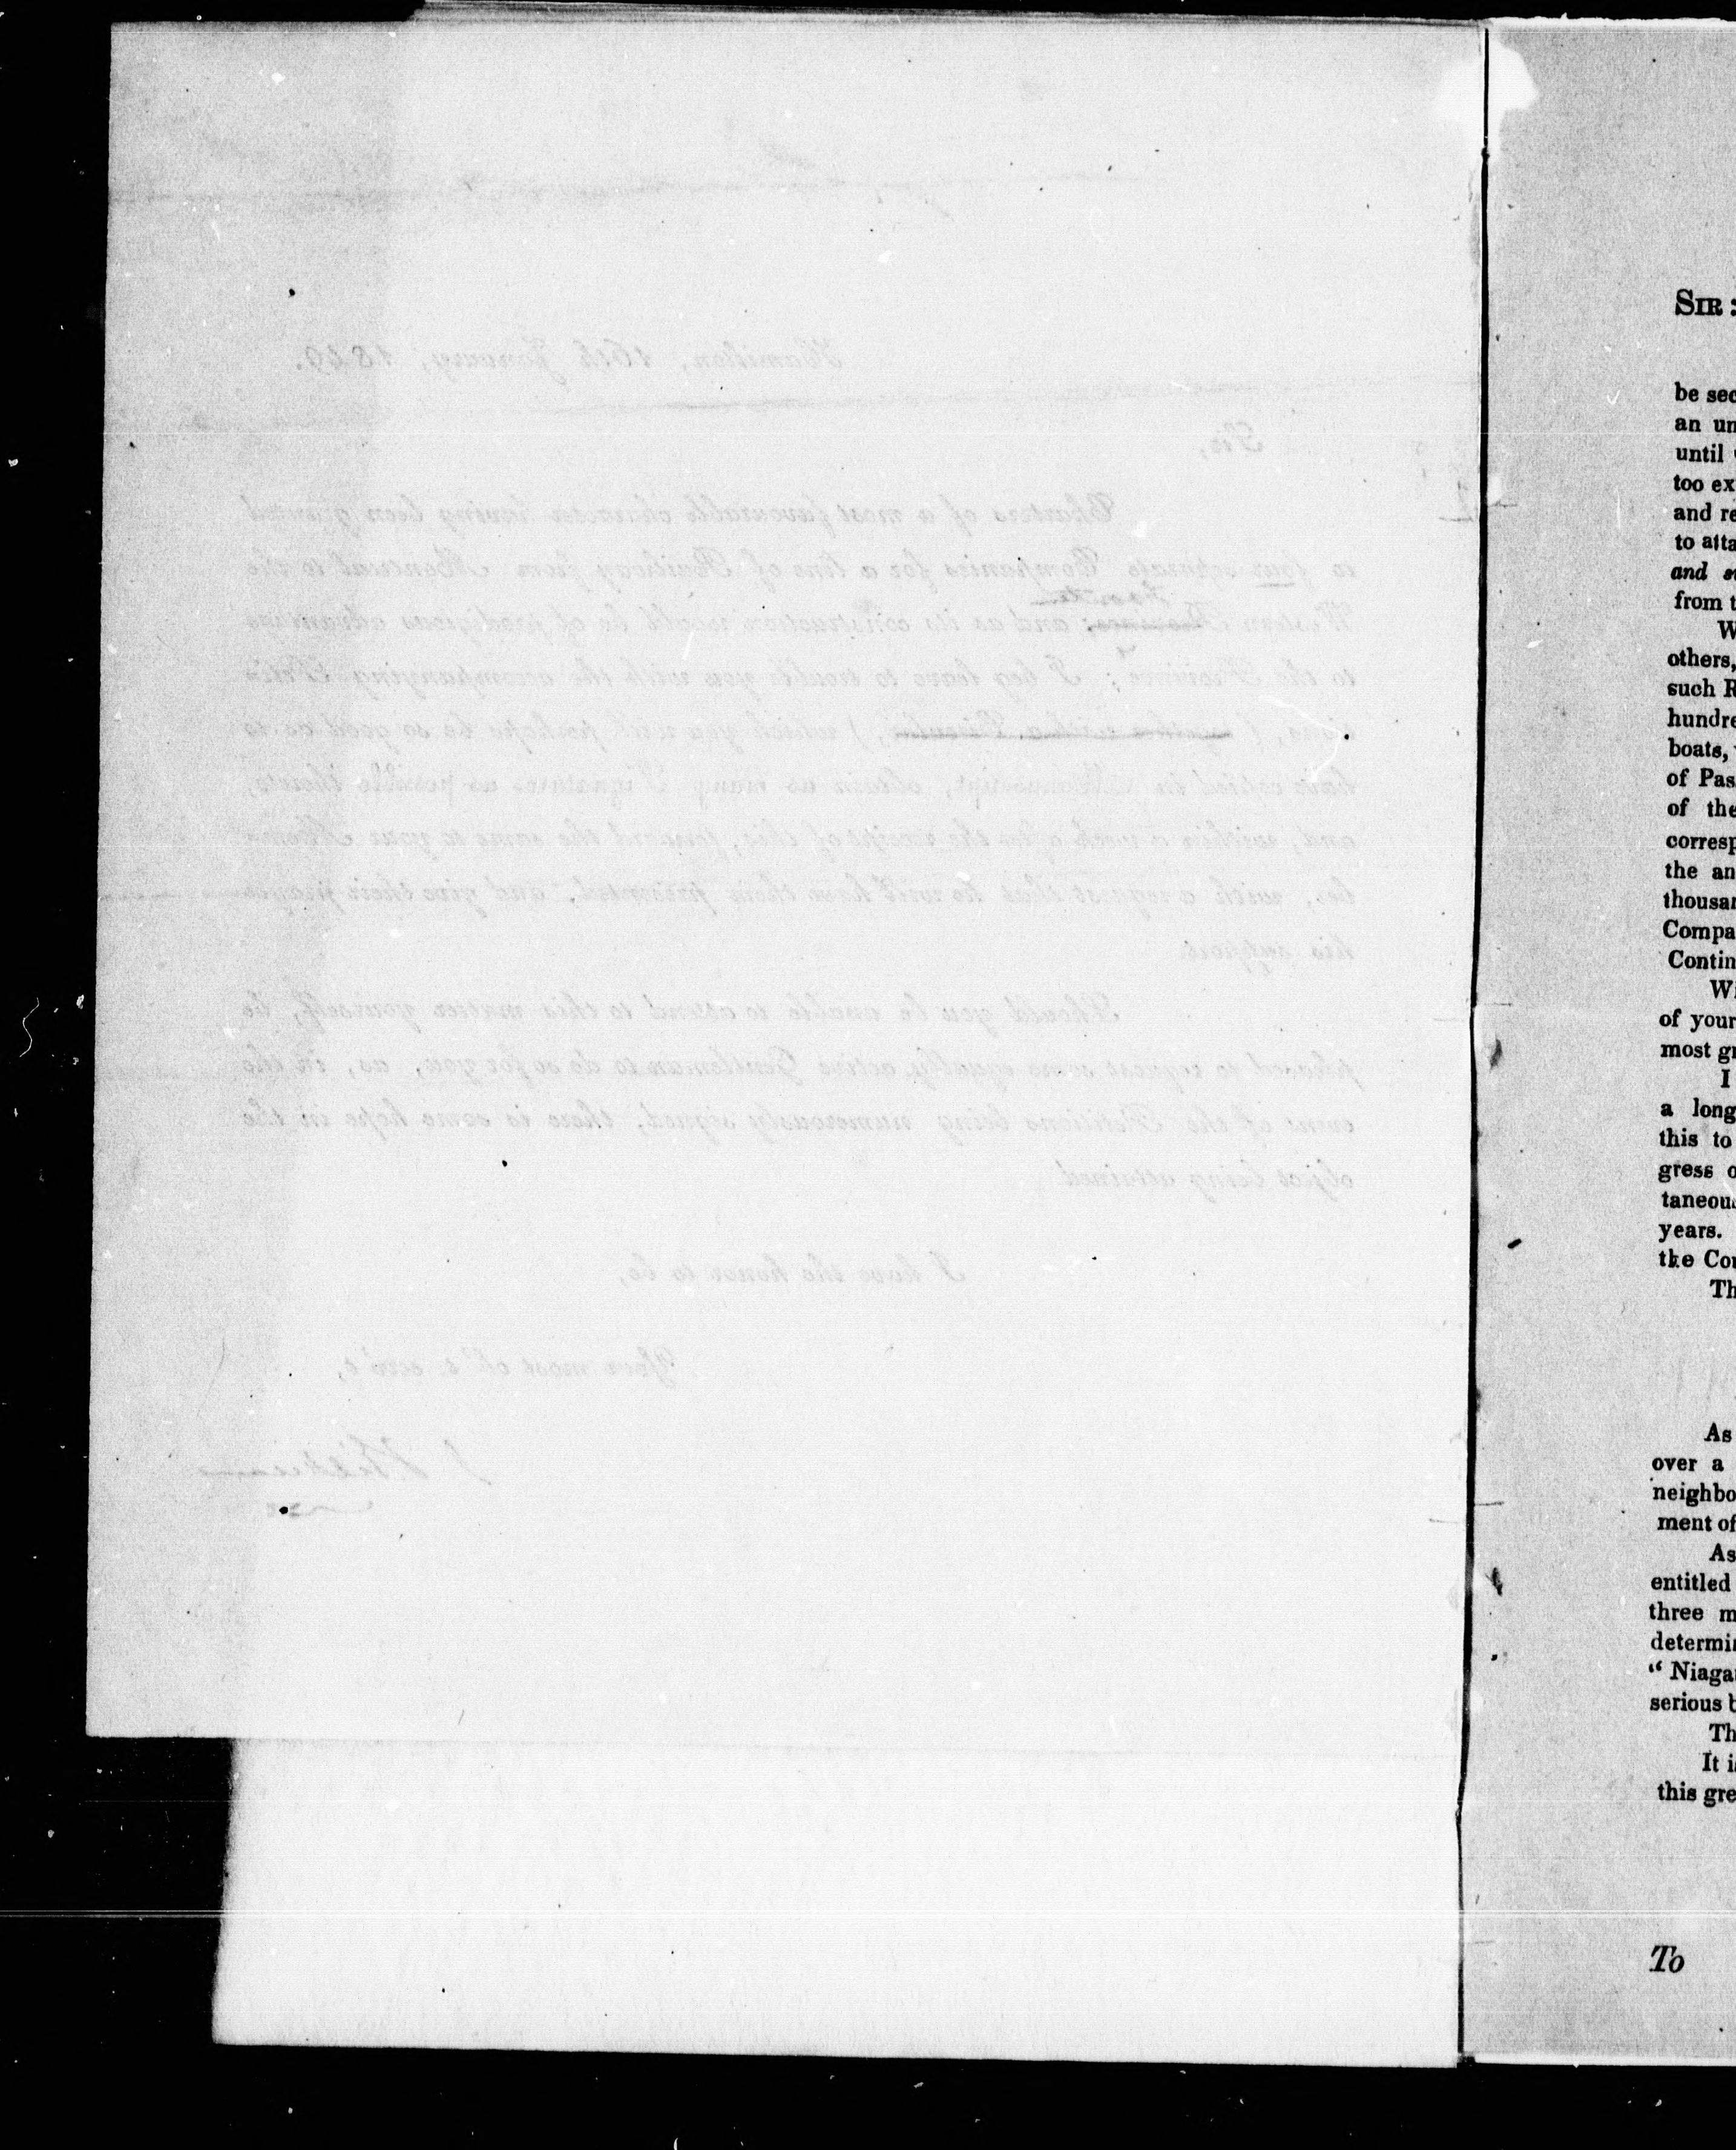 Hamilton, 16th January, 1849.
Sir,
Charters of a most favourable character having been granted
to four separate Companies for a line of Railway from Montreal to the
Western Frontier and as its construction would be of prodigious advantage
to the Province; I beg leave to trouble you with the accompanying Peti-
tions, (together with a Circular,) which you will perhaps be so good as to
have copied in Manuscript, obtain as many Signatures as possible thereto,
and, within a week after the receipt of this, forward the same to your Mem-
ber, with a request that he will have them presented, and give their prayer
his support.
Should you be unable to attend to this matter yourself, be
pleased to request some equally active Gentleman to do so for you, as, in the
event of the Petitions being numerously signed, there is some hope in the
object being attained.
I have the honor to be,
Your most ob't serv't,
SIR:
be sec
an un
until
too ex
and re
to atta
and
from t
W
others,
such R
hundre
boats,
of Pas
of the
corresp
the an
thousan
Compa
Contin
Wi
of your
most gr
I
a long
this to
gress o
taneou
years.
the Con
Th
As
over a
neighbo
ment of
As
entitled
three m
determi
"Niaga
serious b
Th
It i
this gre
To